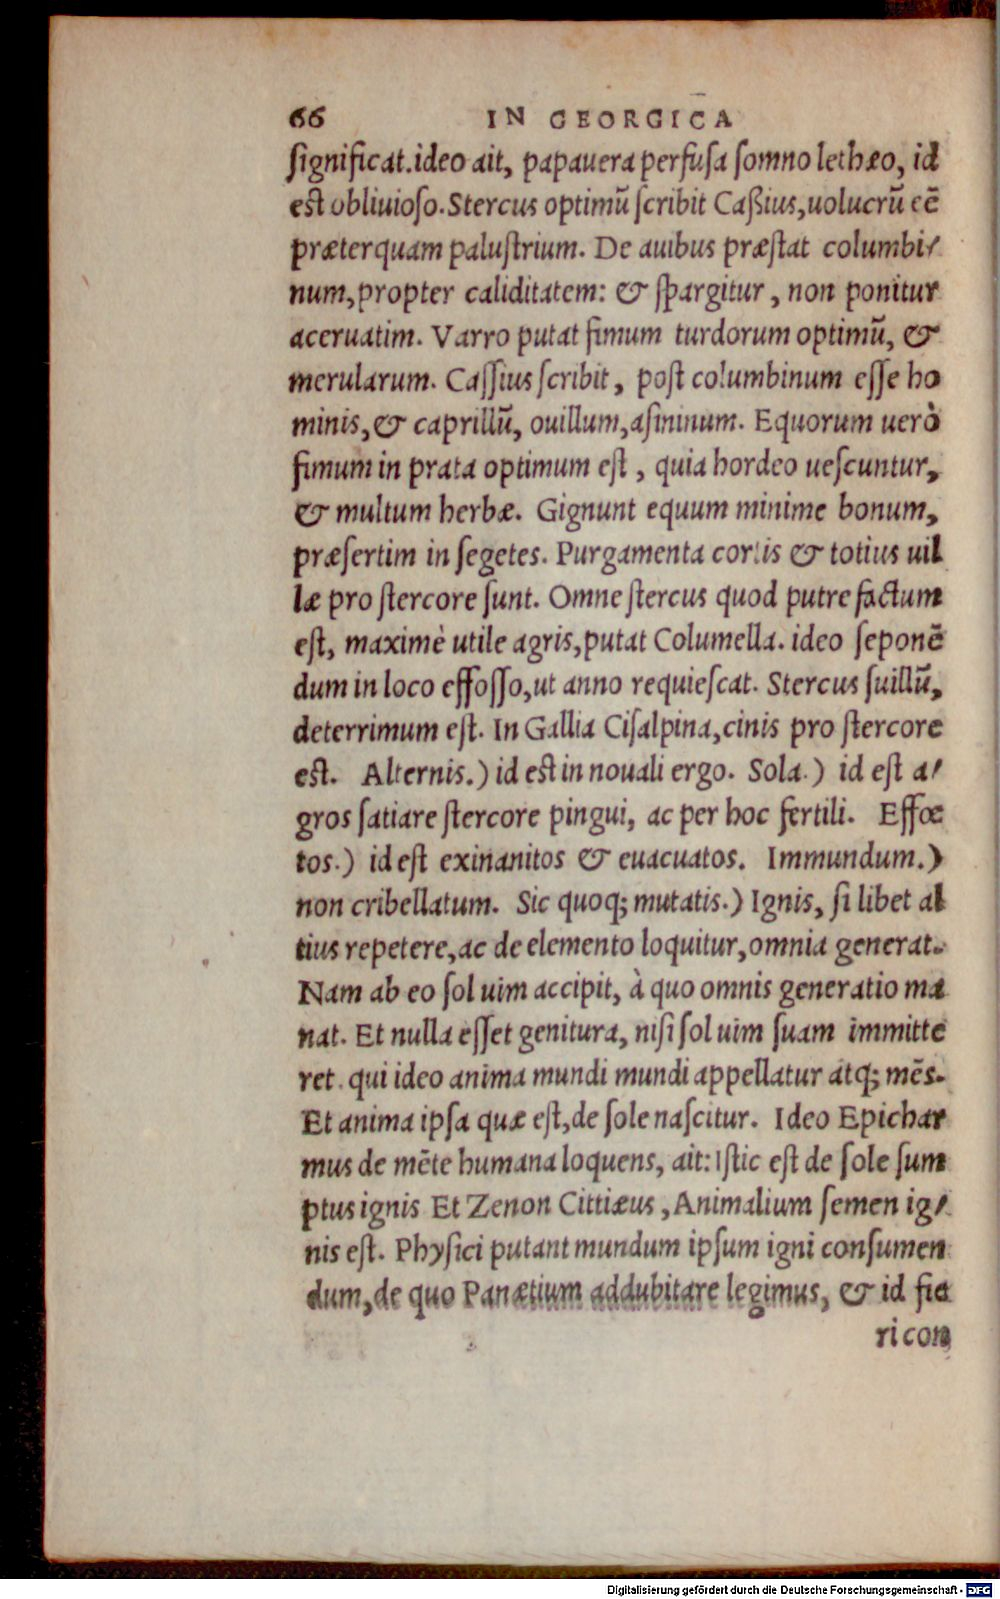 66 IN GEORGICA
significat. ideo ait, papauera perfusa somno lethæo, id
est obliuioso. Stercus optimũ scribit Caßius, uolucrũ eē
præterquam palustrium. De auibus præstat columbi/
num, propter caliditatem: & spargitur, non ponitur
aceruatim. Varro putat fimum turdorum optimũ, &
merularum. Cassius scribit, post columbinum esse ho
minis, & caprillũ, ouillum, asininum. Equorum uerò
fimum in prata optimum est, quia hordeo uescuntur,
& multum herbæ. Gignunt equum minime bonum,
præsertim in segetes. Purgamenta cortis & totius uil
læ pro stercore sunt. Omne stercus quod putre factum
est, maximè utile agris, putat Columella. ideo seponē
dum in loco effosso, ut anno requiescat. Stercus suillũ,
deterrimum est. In Gallia Cisalpina, cinis pro stercore
est. Alternis.) id est in nouali ergo. Sola.) id est a/
gros satiare stercore pingui, ac per hoc fertili. Effœ
tos.) id est exinanitos & euacuatos. Immundum.)
non cribellatum. Sic quoq; mutatis.) Ignis, si libet al
tius repetere, ac de elemento loquitur, omnia generat.
Nam ab eo sol uim accipit, à quo omnis generatio ma
nat. Et nulla esset genitura, nisi sol uim suam immitte
ret. qui ideo anima mundi mundi appellatur atq; mēs.
Et anima ipsa quæ est, de sole nascitur. Ideo Epichar
mus de mēte humana loquens, ait: Istic est de sole sum
ptus ignis Et Zenon Cittiæus, Animalium semen ig/
nis est. Physici putant mundum ipsum igni consumen
dum, de quo Panætium addubitare legimus, & id fie
ri con
Digitalisierung gefördert durch die Deutsche Forschungsgemeinschaft - DFG